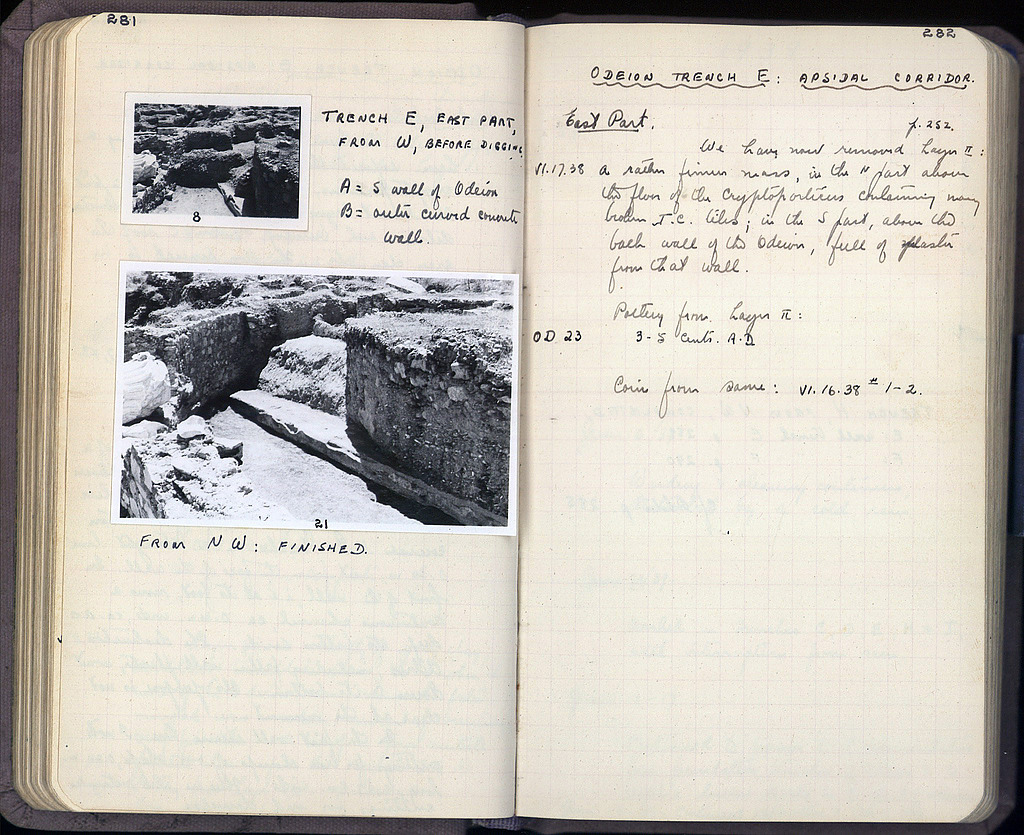 281
TRENCH E, EAST PART,
FROM W, BEFORE DIGGING.
A = S wall of Odeion
B = outer curved concrete
wall.
8
21
FROM NW: FINISHED.
282
ODEION TRENCH E: APSIDAL CORRIDOR.
East Part.
p. 252.
We have now removed Layer II:
VI.17.38 a rather firmer mass, in the N part above
the floor of the Cryptoporticus containing many
broken T.C. tiles; in the S part, above the
back wall of the Odeion, full of plaster
from that wall.
Pottery from Layer II:
OD 23 3-5 cents. A.D
Coin from same: VI.16.38 # 1-2.